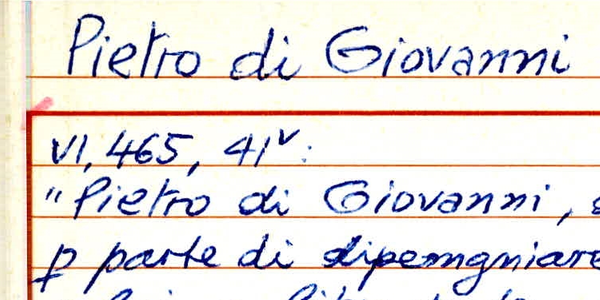 Pietro di Giovanni
VI, 465, 41v:
"Pietro di Giovanni,
p parte di dipemgniare